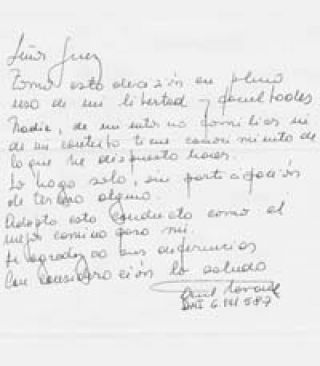 Señor Juez
Tomo esta decisión en pleno
uso de mi libertad y facultades
Nadie, de mi entorno familiar ni
de mi contexto tiene conocimiento de
lo que he dispuesto hacer.
Lo hago solo, sin participación
de tercero alguno.
Adopto esta conducta como el
mejor camino para mi.
le agradezco sus diligencias
Con consideración lo saluda
DNI 6.141.587